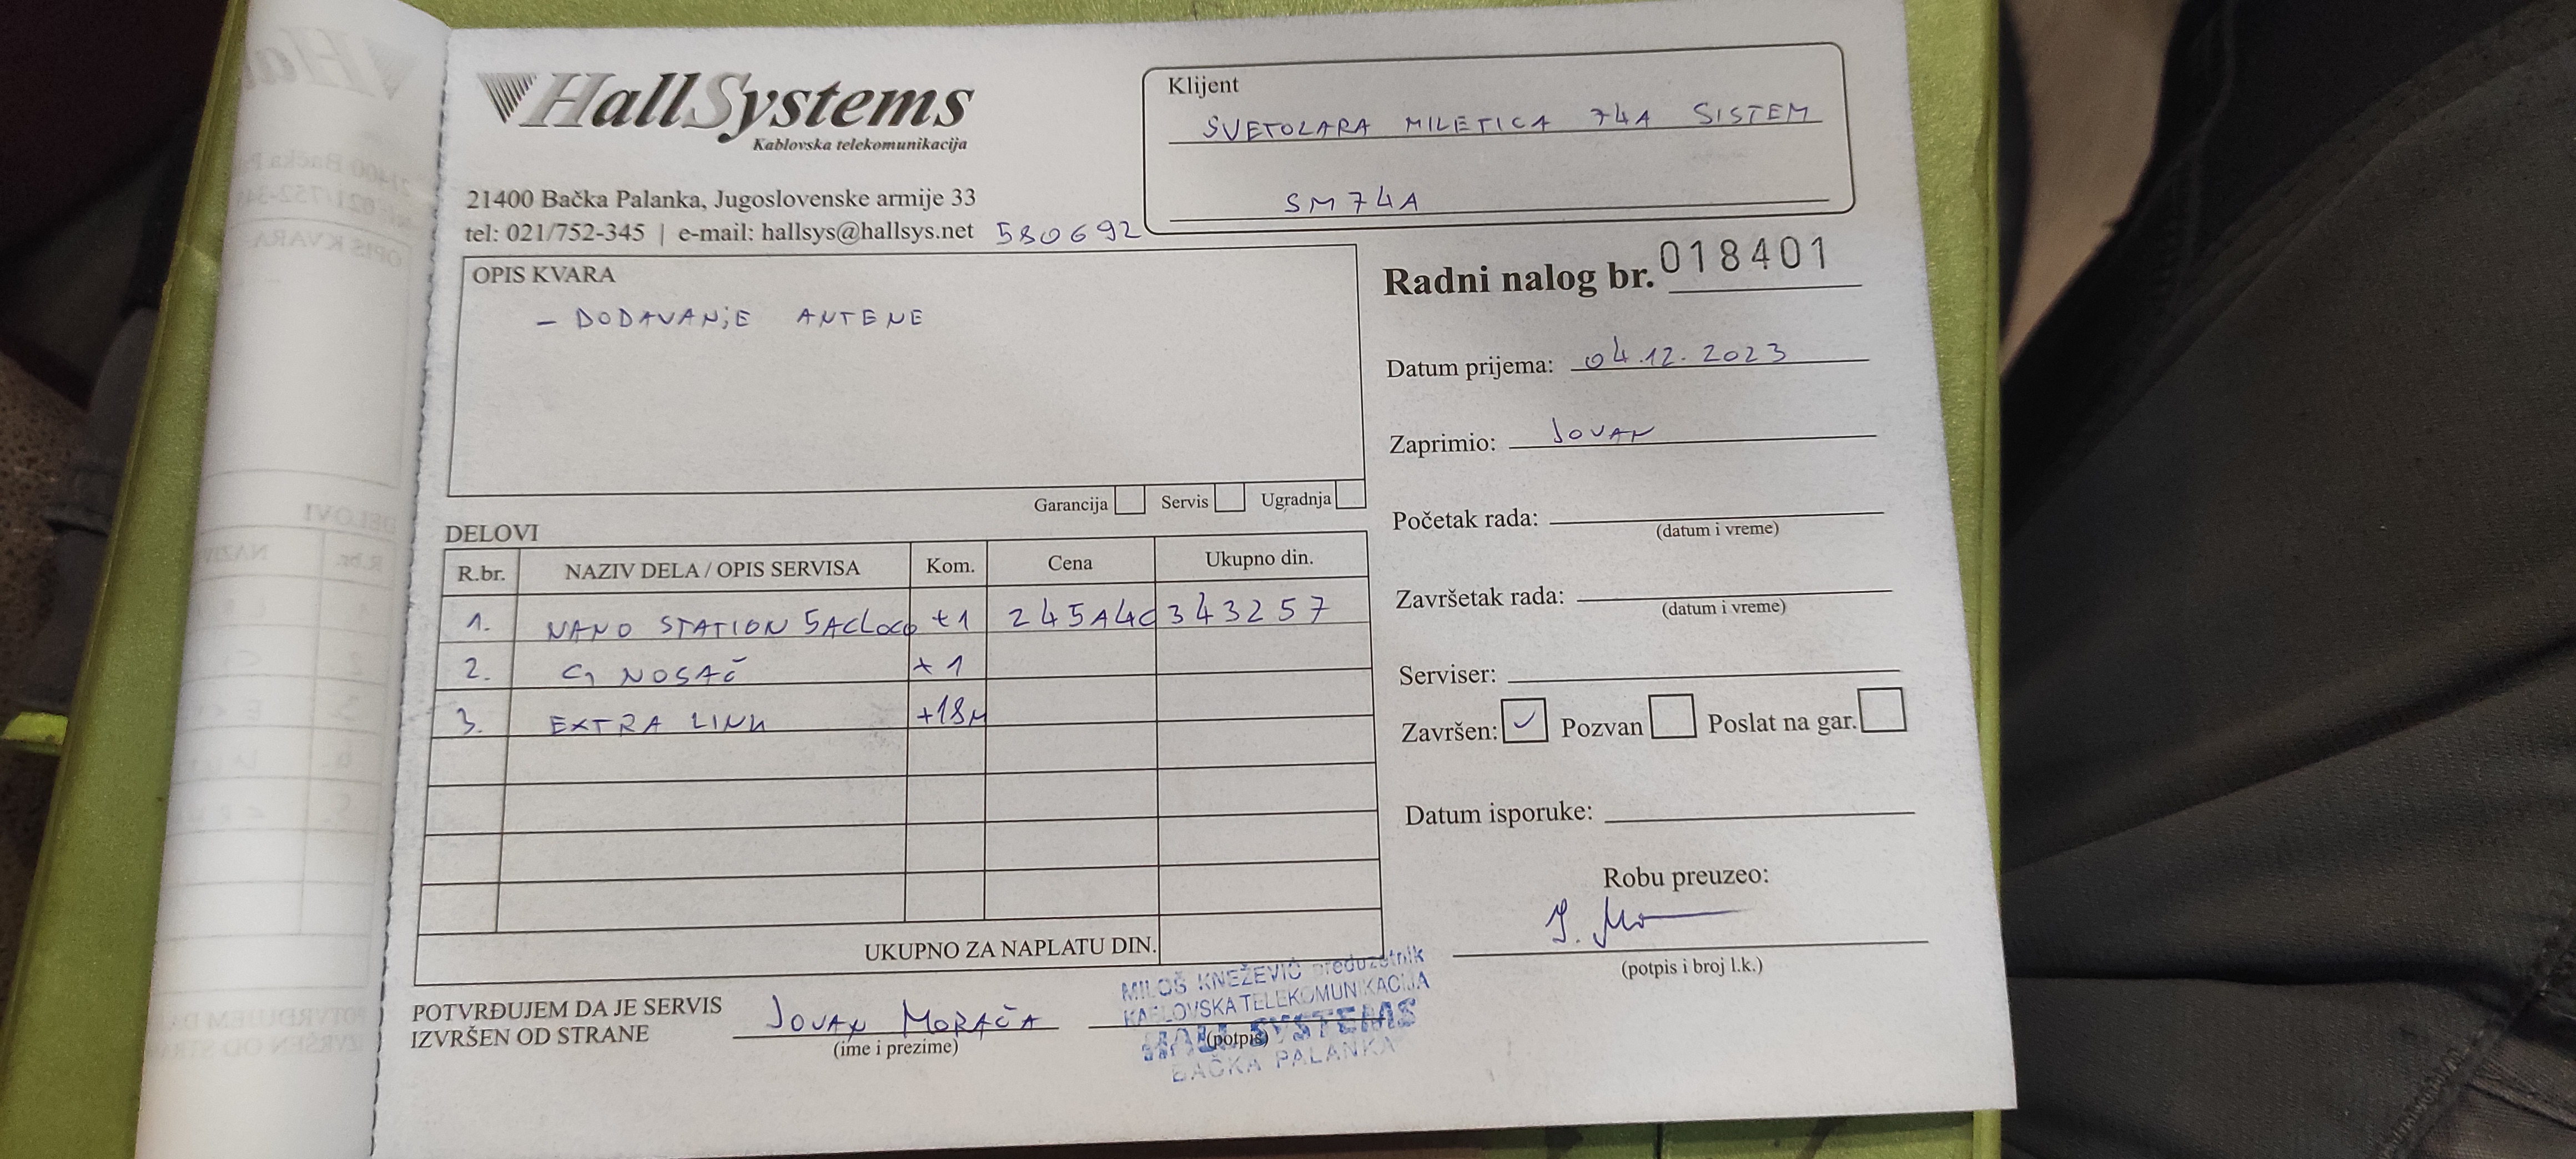 HallSystems
Kablovska telekomunikacija
21400 Bačka Palanka, Jugoslovenske armije 33
tel: 021/752-345 | e-mail: hallsys@hallsys.net 580692
Klijent
SVETOZARA MILETICA 74A SISTEM
SM74A
OPIS KVARA
- DODAVANjE ANTENE
Garancija Servis Ugradnja
Radni nalog br. 018401
Datum prijema: 04.12.2023
Zaprimio: JOVAN
Početak rada:
(datum i vreme)
Završetak rada:
(datum i vreme)
Serviser:
Završen: ✓ Pozvan Poslat na gar.
Datum isporuke:
Robu preuzeo:
(potpis i broj l.k.)
DELOVI
R.br. NAZIV DELA / OPIS SERVISA Kom. Cena Ukupno din.
1. NANO STATION 5ACLOCO +1 245A4C343257
2. NOSAČ +1
3. EXTRA LINK +18M
UKUPNO ZA NAPLATU DIN.
POTVRĐUJEM DA JE SERVIS
IZVRŠEN OD STRANE
JOVAN MORAČA
(ime i prezime)
(potpis)
MILOŠ KNEŽEVIĆ preduzetnik
KABLOVSKA TELEKOMUNIKACIJA
HALL SYSTEMS
BAČKA PALANKA